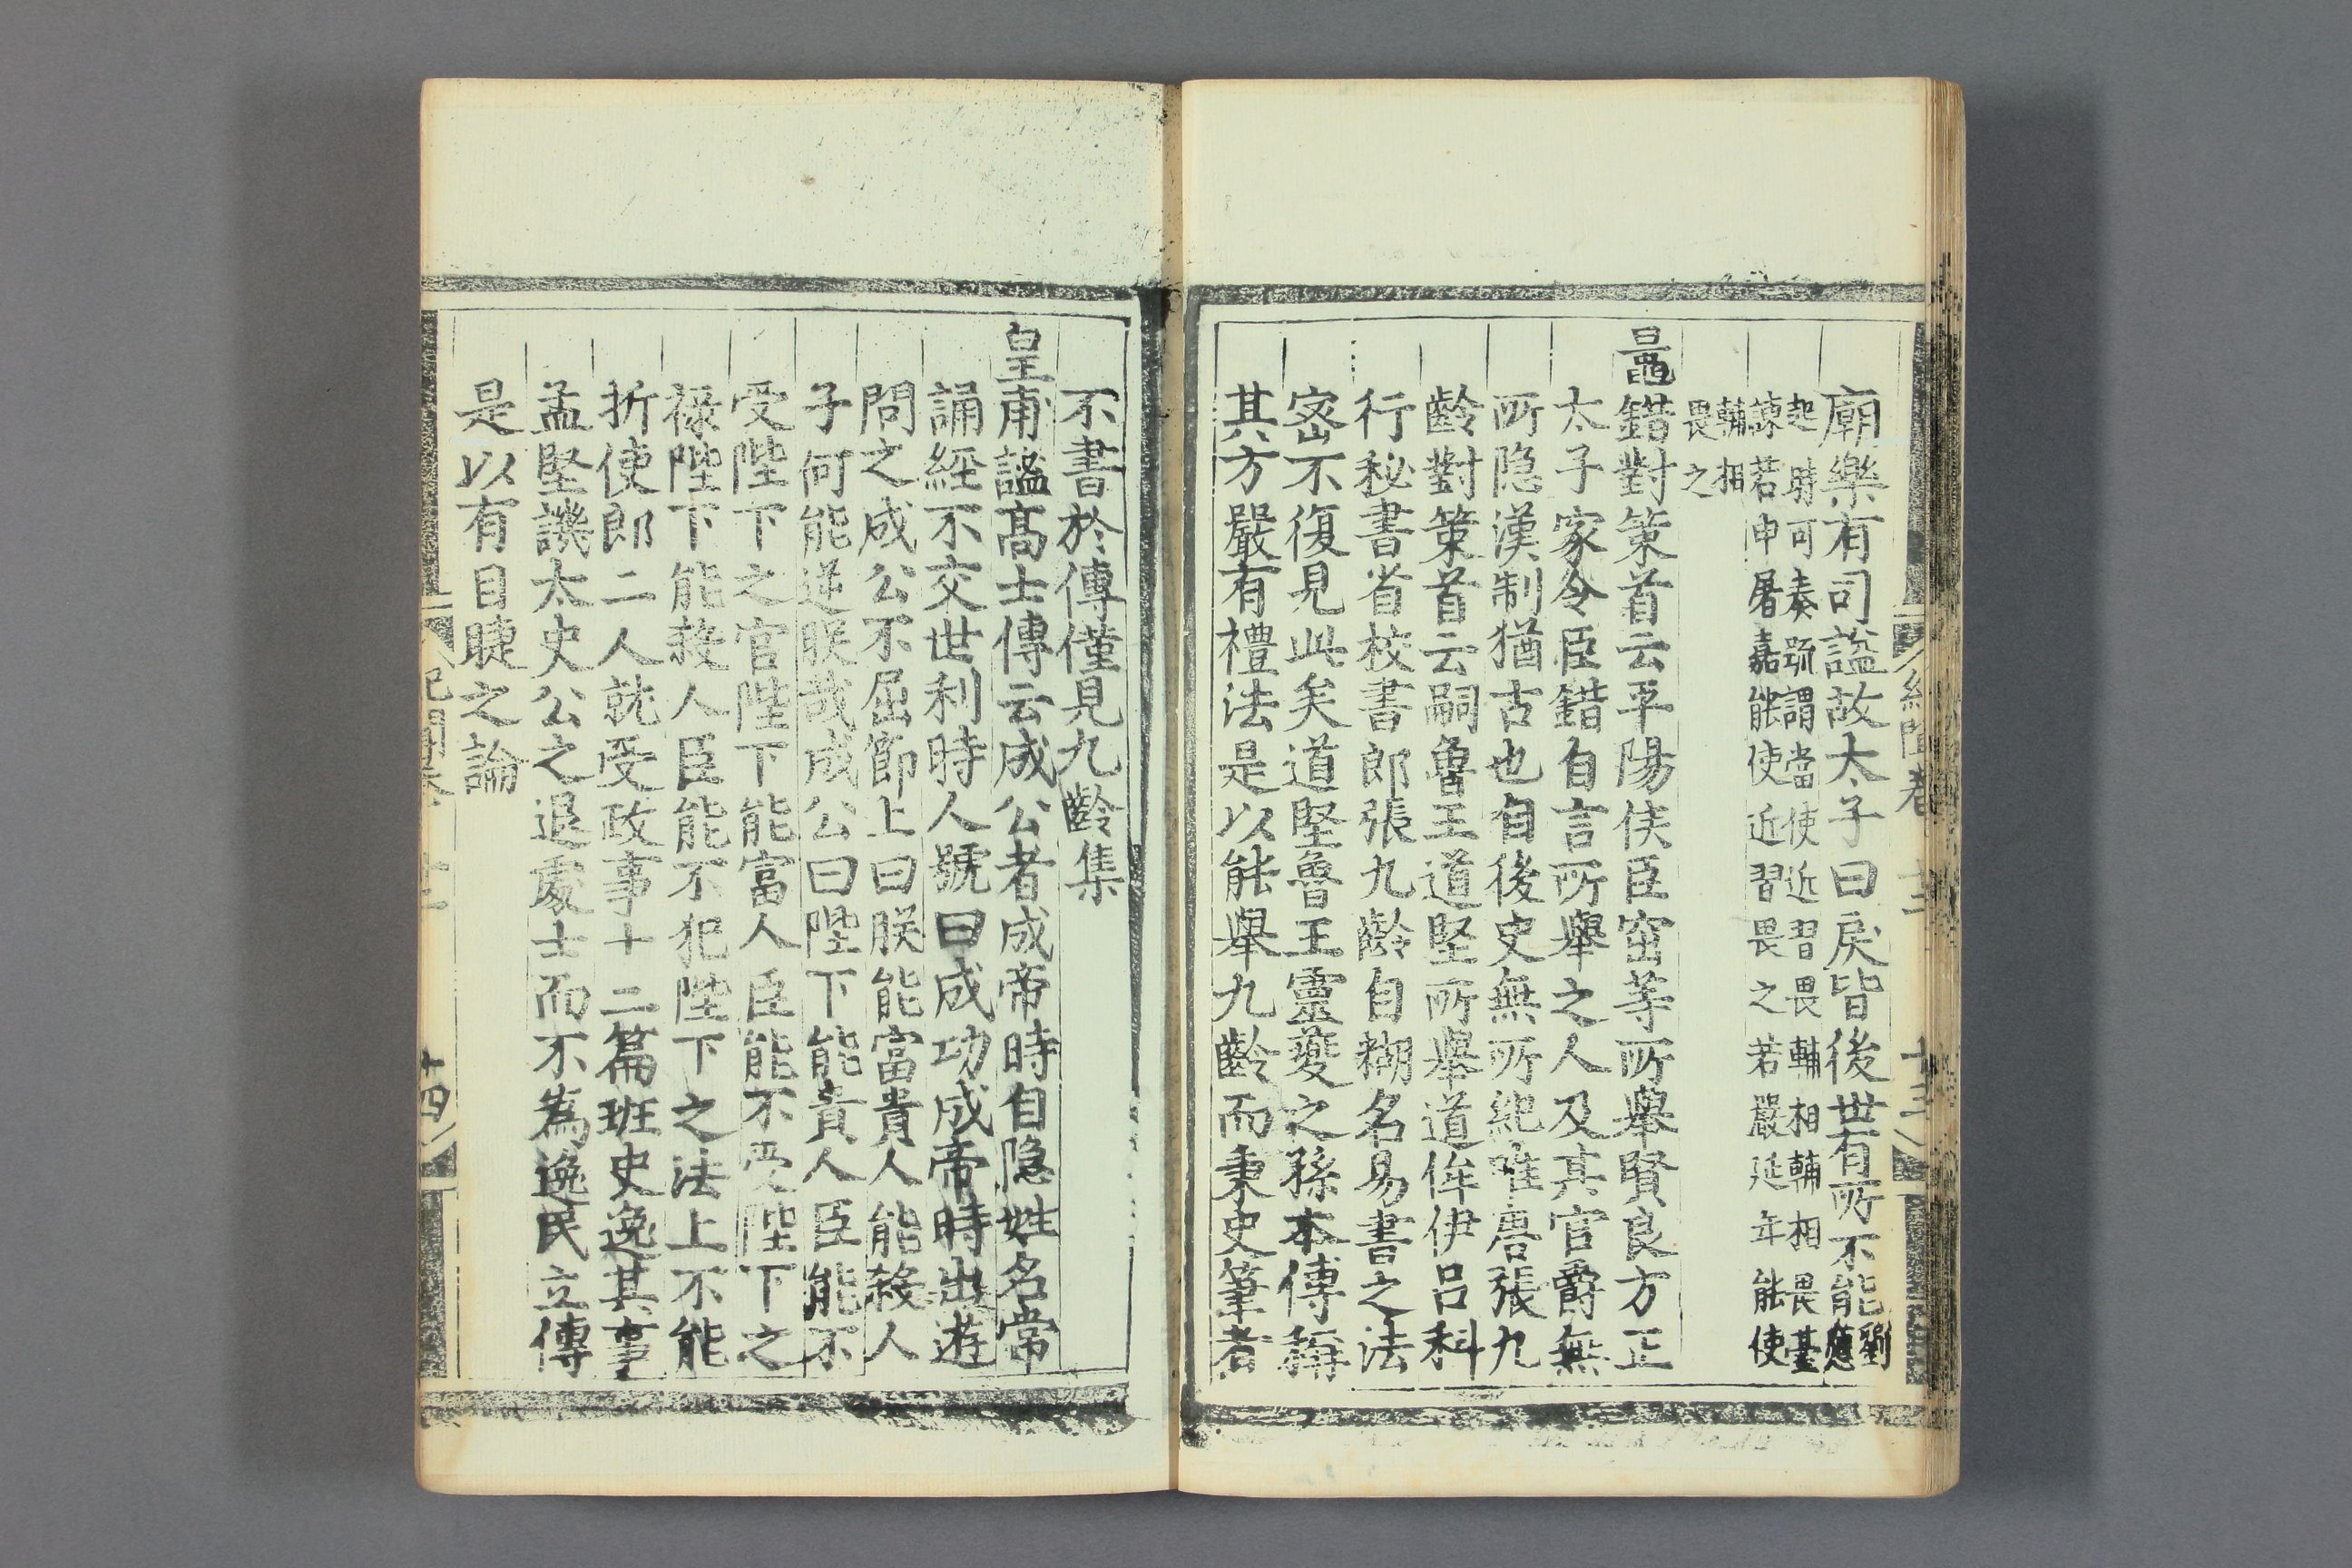 廟樂有司謚故太子曰戾皆後世有所不能劉應
起時可奏疏謂當使近習畏輔相輔相畏臺
諫若申屠嘉能使近習畏之若嚴延年能使
輔相
畏之
鼂錯對策首云平陽侯臣窋等所舉賢良方正
太子家令臣錯自言所舉之人及其官爵無
所隐漢制猶古也自後史無所紀唯唐張九
齡對策首云嗣魯王道堅所舉道侔伊吕科
行秘書省校書郎張九齡自糊名易書之法
宻不復見此矣道堅魯王靈夔之孫本傳稱
其方嚴有禮法是以能舉九齡而秉史筆者
不書於傳僅見九齡集
皇甫謐髙士傳云成公者成帝時自隐姓名常
誦經不交世利時人號曰成功成帝時出遊
問之成公不屈節上曰朕能富貴人能殺人
子何能逆朕哉成公曰陛下能貴人臣能不
受陛下之官陛下能富人臣能不受陛下之
禄陛下能殺人臣能不犯陛下之法上不能
折使郎二人就受政事十二篇班史逸其事
孟堅譏太史公之退處士而不為逸民立傳
是以有目睫之論
十四